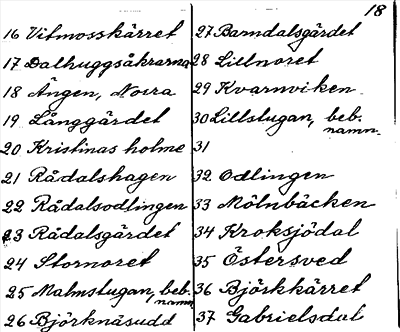 18
16 Vitmosskärret
17 Dalhuggsåkrarna
18 Ängen, Norra
19 Långgärdet
20 Kristinas holme
21 Rådalshagen
22 Rådalsodlingen
23 Rådalsgärdet
24 Stornoret
25 Malmstugan, beb.
namn
26 Björknäsudd
27 Barndalsgärdet
28 Lillnoret
29 Kvarnviken
30 Lillstugan, beb.
namn.
31
32 Odlingen
33 Mölnbäcken
34 Kroksjödal
35 Östersved
36 Björkkärret
37 Gabrielsdal